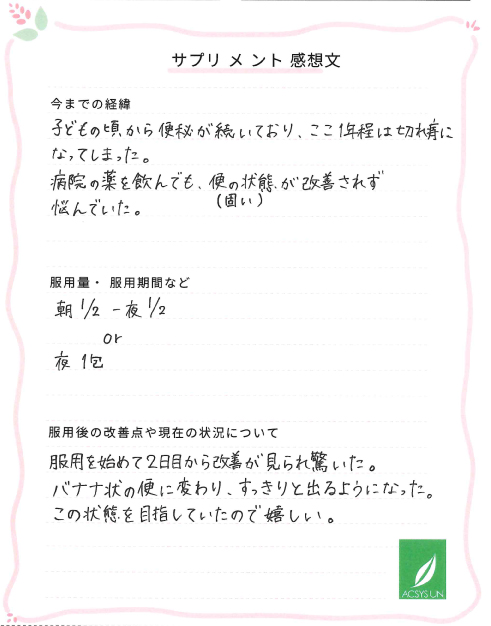 サプリメント感想文
今までの経緯
子どもの頃から便秘が続いており、ここ1年程は切れ痔に
なってしまった。
病院の薬を飲んでも、便の状態が改善されず
(固い)
悩んでいた。
服用量・服用期間など
朝 1/2 ー 夜 1/2
or
夜 1包
服用後の改善点や現在の状況について
服用を始めて2日目から改善が見られ驚いた。
バナナ状の便に変わり、すっきりと出るようになった。
この状態を目指していたので嬉しい。
ACSYSUN